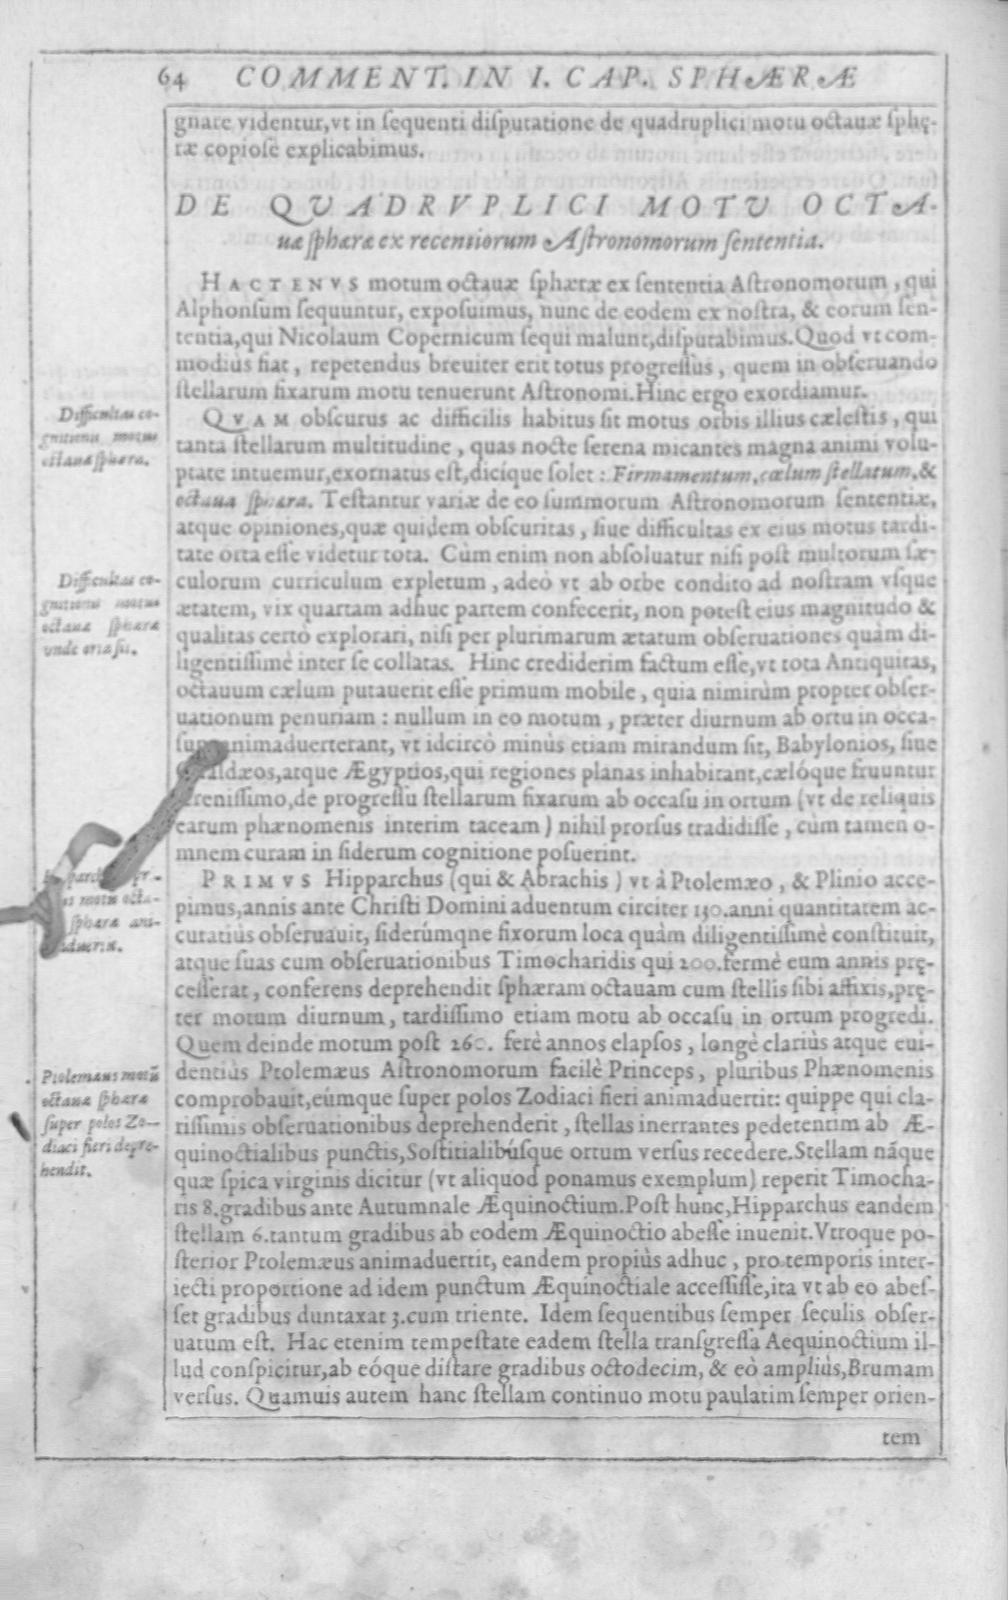 64 COMMENT. IN I. CAP. SPHÆRÆ
gnare videntur, vt in sequenti disputatione de quadruplici motu octauæ sphę-
ræ copiosè explicabimus.
DE QVADRVPLICI MOTV OCTA-
uæ sphæræ ex recentiorum Astronomorum sententia.
HACTENVS motum octauæ sphæræ ex sententia Astronomorum, qui
Alphonsum sequuntur, exposuimus, nunc de eodem ex nostra, & eorum sen-
tentia, qui Nicolaum Copernicum sequi malunt, disputabimus. Quod vt com-
modius fiat, repetendus breuiter erit totus progressus, quem in obseruando
stellarum fixarum motu tenuerunt Astronomi. Hinc ergo exordiamur.
Difficultas co-
gnitionis motus
octauæ sphæræ.
QVAM obscurus ac difficilis habitus sit motus orbis illius cælestis, qui
tanta stellarum multitudine, quas nocte serena micantes magna animi volu-
ptate intuemur, exornatus est, dicique solet: Firmamentum, cælum stellatum, &
octaua sphæra. Testantur variæ de eo summorum Astronomorum sententiæ,
atque opiniones, quæ quidem obscuritas, siue difficultas ex eius motus tardi-
tate orta esse videtur tota. Cùm enim non absoluatur nisi post multorum sæ-
Difficultas co-
gnitionis motus
octauæ sphæræ
vnde orta sit.
culorum curriculum expletum, adeò vt ab orbe condito ad nostram vsque
ætatem, vix quartam adhuc partem confecerit, non potest eius magnitudo &
qualitas certò explorari, nisi per plurimarum ætatum obseruationes quàm di-
ligentissimè inter se collatas. Hinc crediderim factum esse, vt tota Antiquitas,
octauum cælum putauerit esse primum mobile, quia nimirùm propter obser-
uationum penuriam: nullum in eo motum, præter diurnum ab ortu in occa-
animaduerterant, vt idcircò minùs etiam mirandum sit, Babylonios, siue
ldæos, atque Ægyptios, qui regiones planas inhabitant, cælóque fruuntur
renissimo, de progressu stellarum fixarum ab occasu in ortum (vt de reliquis
earum phænomenis interim taceam) nihil prorsus tradidisse, cùm tamen o-
mnem curam in siderum cognitione posuerint.
parch pr-
us motu octa-
sphæræ ani-
aduertit.
PRIMVS Hipparchus (qui & Abrachis) vt à Ptolemæo, & Plinio acce-
pimus, annis ante Christi Domini aduentum circiter 130. anni quantitatem ac-
curatiùs obseruauit, siderúmqne fixorum loca quàm diligentissimè constituit,
atque suas cum obseruationibus Timocharidis qui 200. fermè eum annis prę-
cesserat, conferens deprehendit sphæram octauam cum stellis sibi affixis, prę-
ter motum diurnum, tardissimo etiam motu ab occasu in ortum progredi.
Quem deinde motum post 260. ferè annos elapsos, longè clariùs atque eui-
Ptolemæus motū
octauæ sphæræ
super polos Zo-
diaci fieri depre-
hendit.
dentiùs Ptolemæus Astronomorum facilè Princeps, pluribus Phænomenis
comprobauit, eúmque super polos Zodiaci fieri animaduertit: quippe qui cla-
rissimis obseruationibus deprehenderit, stellas inerrantes pedetentim ab Æ-
quinoctialibus punctis, Solstitialibúsque ortum versus recedere. Stellam nãque
quæ spica virginis dicitur (vt aliquod ponamus exemplum) reperit Timocha-
ris 8. gradibus ante Autumnale Æquinoctium. Post hunc, Hipparchus eandem
stellam 6. tantum gradibus ab eodem Æquinoctio abesse inuenit. Vtroque po-
sterior Ptolemæus animaduertit, eandem propiùs adhuc, pro temporis inter-
iecti proportione ad idem punctum Æquinoctiale accessisse, ita vt ab eo abes-
set gradibus duntaxat 3. cum triente. Idem sequentibus semper seculis obser-
uatum est. Hac etenim tempestate eadem stella transgressa Aequinoctium il-
lud conspicitur, ab eóque distare gradibus octodecim, & eò ampliùs, Brumam
versus. Quamuis autem hanc stellam continuo motu paulatim semper orien-
tem